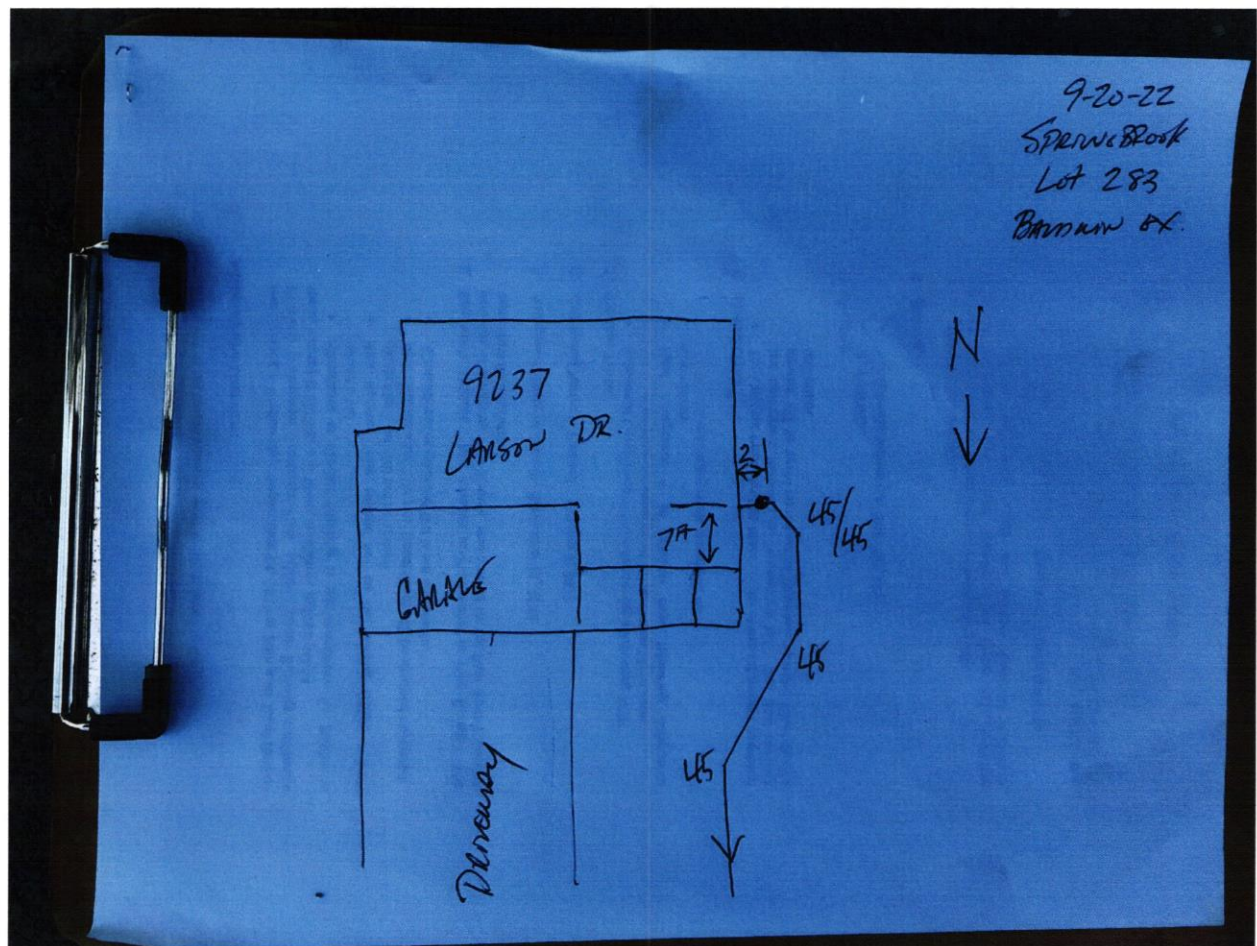 9-20-22
SPRINGBROOK
Lot 283
BALDWIN EX.
N
9237
LARSON DR.
2
45/45
7ft
GARAGE
45
45
Driveway